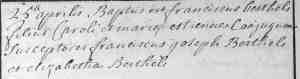 25ª aprilis, Baptisatus franciscus Berthels
filius Caroli et mariae Conjugum
Susceptores franciscus joseph Berthels
et elizabetha Berthels